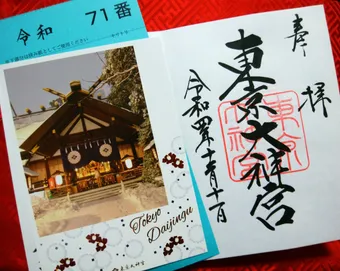 令和 71番
Tokyo
Daijingu
東京大神宮
奉拝
東京大神宮
令和四年十二月十一日